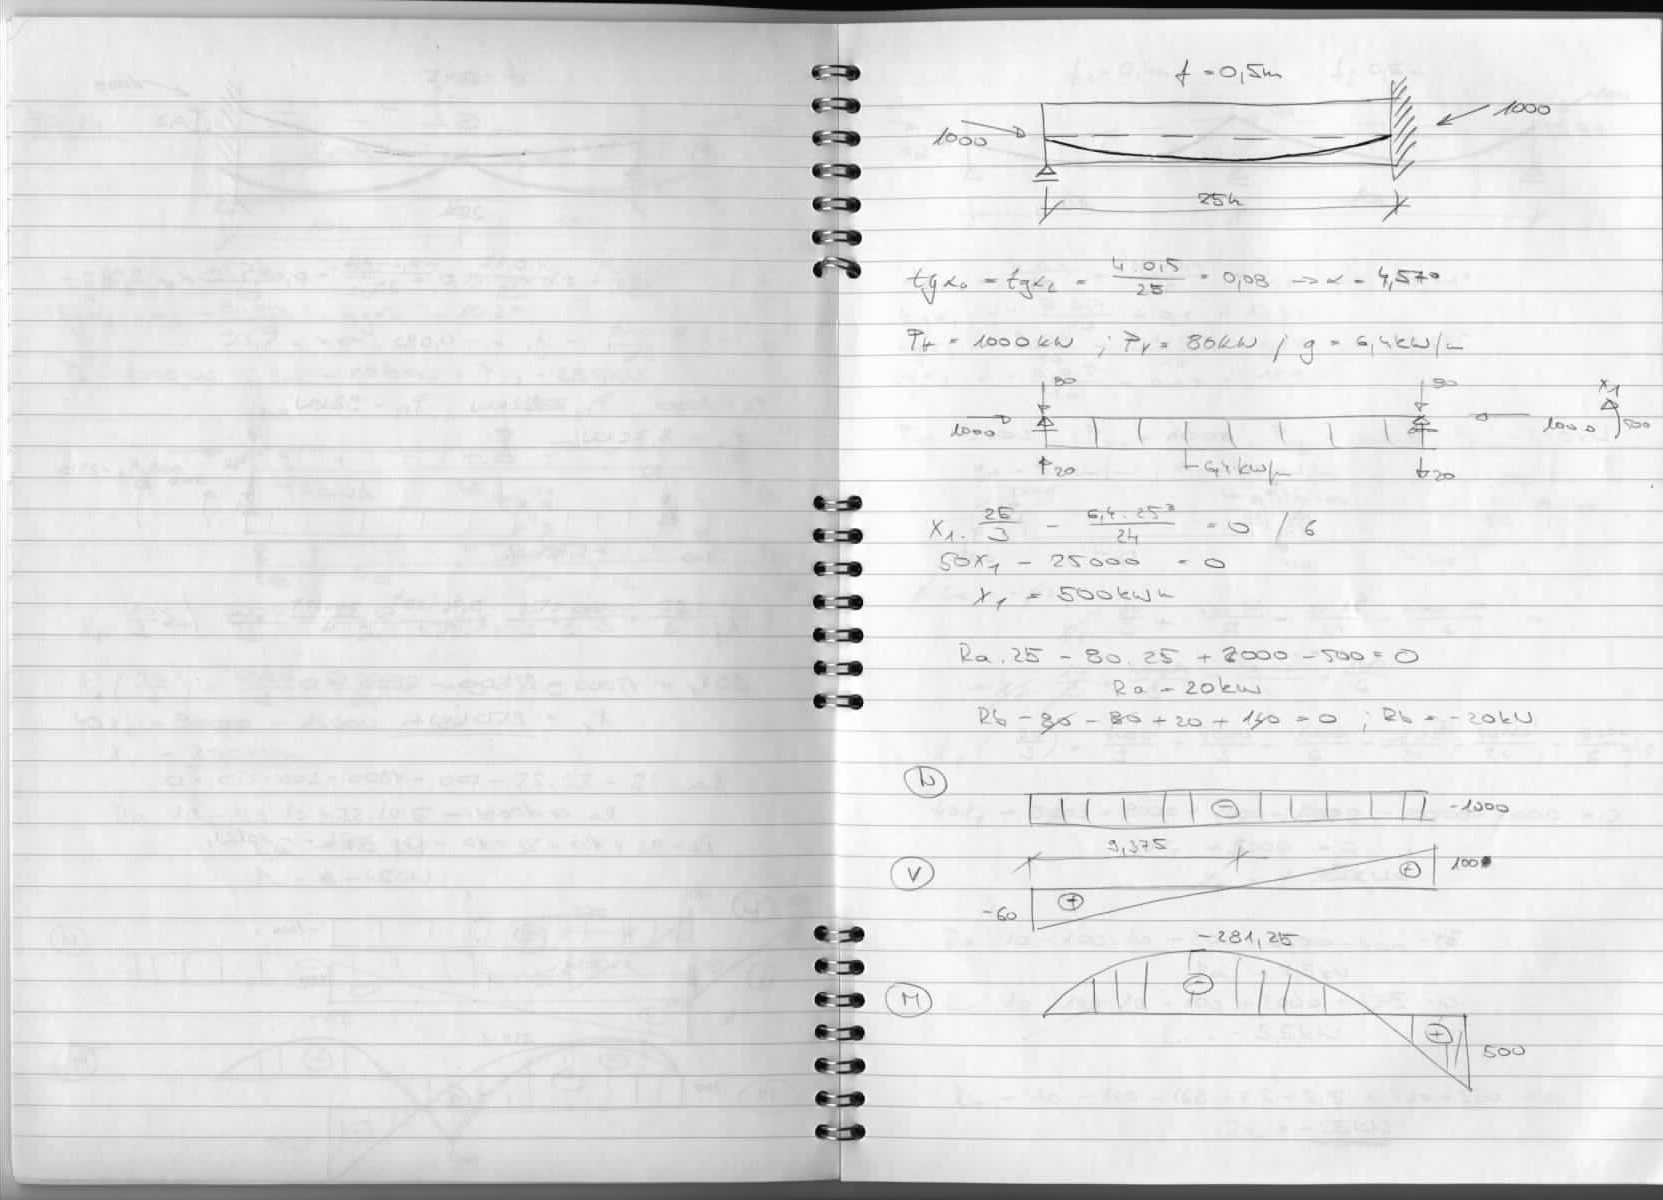 f = 0,5m
1000
1000
25m
tgα₀ = tgα_L = 4·0,5/25 = 0,08 → α = 4,57°
P_H = 1000kN ; P_V = 80kN ; g = 6,4kN/m
80 80 x₁
1000 1000 500
20 6,4kN/m 20
x₁ · 25/3 - 6,4·25³/24 = 0 / 6
50x₁ - 25000 = 0
x₁ = 500kNm
Ra.25 - 80.25 + 2000 - 500 = 0
Ra = 20kN
Rb - 80 - 80 + 20 + 160 = 0 ; Rb = -20kN
N - -1000
9,375
V + + 100
-60
-281,25
M - +
500